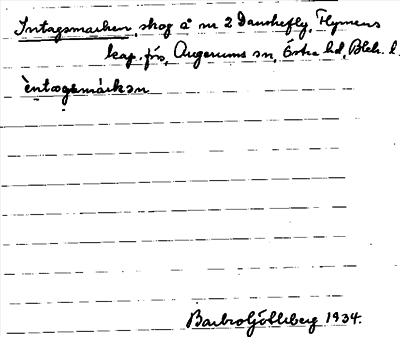 Intagsmarken, skog å nr 2 Danskefly, Flymens
kap. förs, Augerums sn, Östra hd, Blek. l.
èntagsmárkən
Barbro Göllberg 1934.